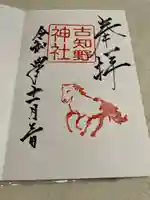 奉拝
古知野
神社
令和
年十一月